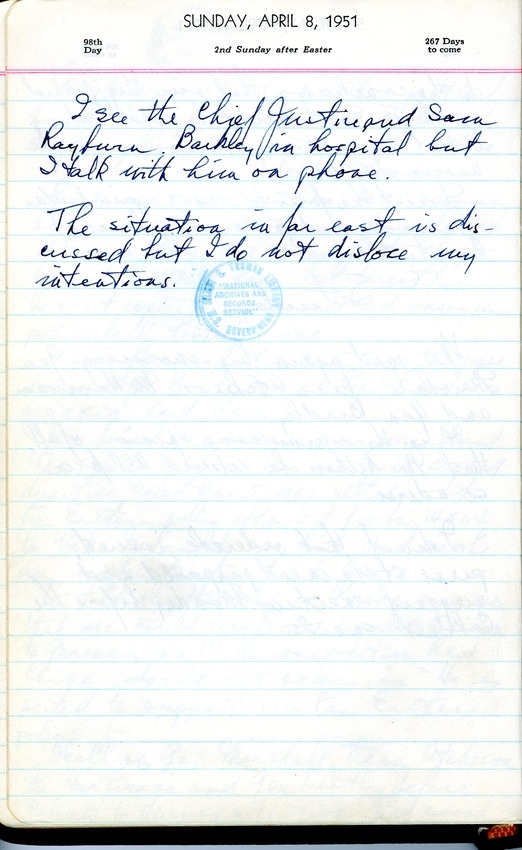 SUNDAY, APRIL 8, 1951
98th
Day
2nd Sunday after Easter
267 Days
to come
I see the Chief Justice and Sam
Rayburn. Barkley in hospital but
I talk with him on phone.
The situation in far east is dis-
cussed but I do not dislose my
intentions.
HARRY S. TRUMAN LIBRARY
"NATIONAL
ARCHIVES AND
RECORDS
SERVICE"
U.S. GOVERNMENT